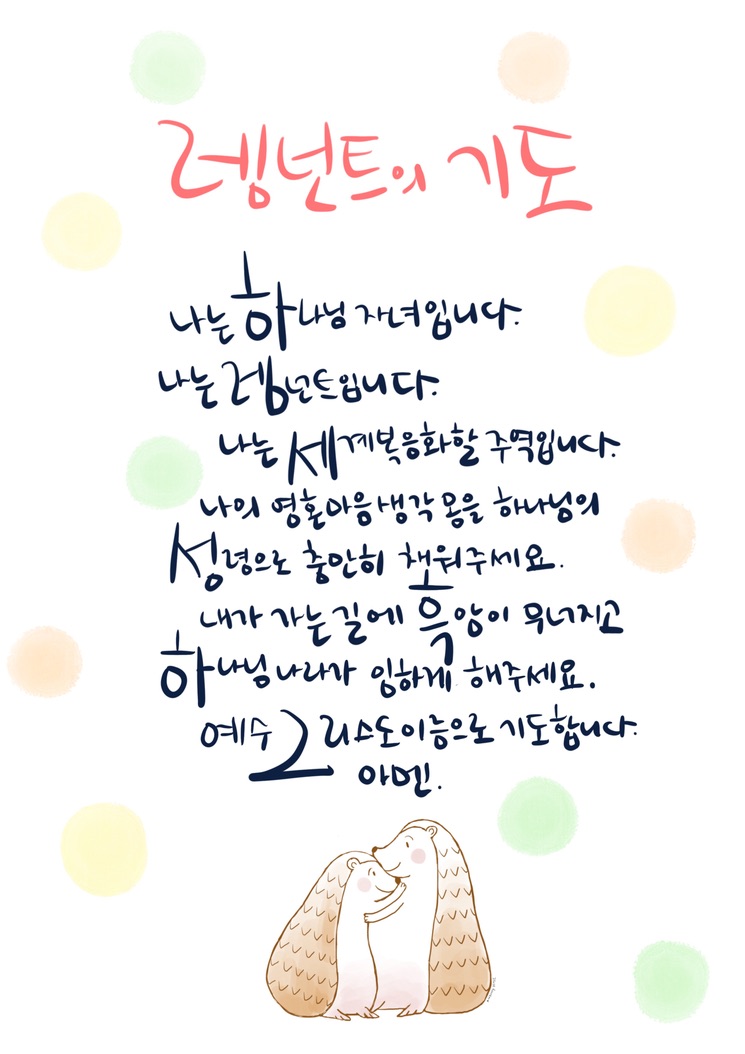 렘넌트의 기도
나는 하나님 자녀입니다.
나는 렘넌트입니다.
나는 세계복음화할 주역입니다.
나의 영혼마음생각 몸을 하나님의
성령으로 충만히 채워주세요.
내가 가는 길에 흑암이 무너지고
하나님나라가 임하게 해주세요.
예수그리스도이름으로 기도합니다.
아멘.